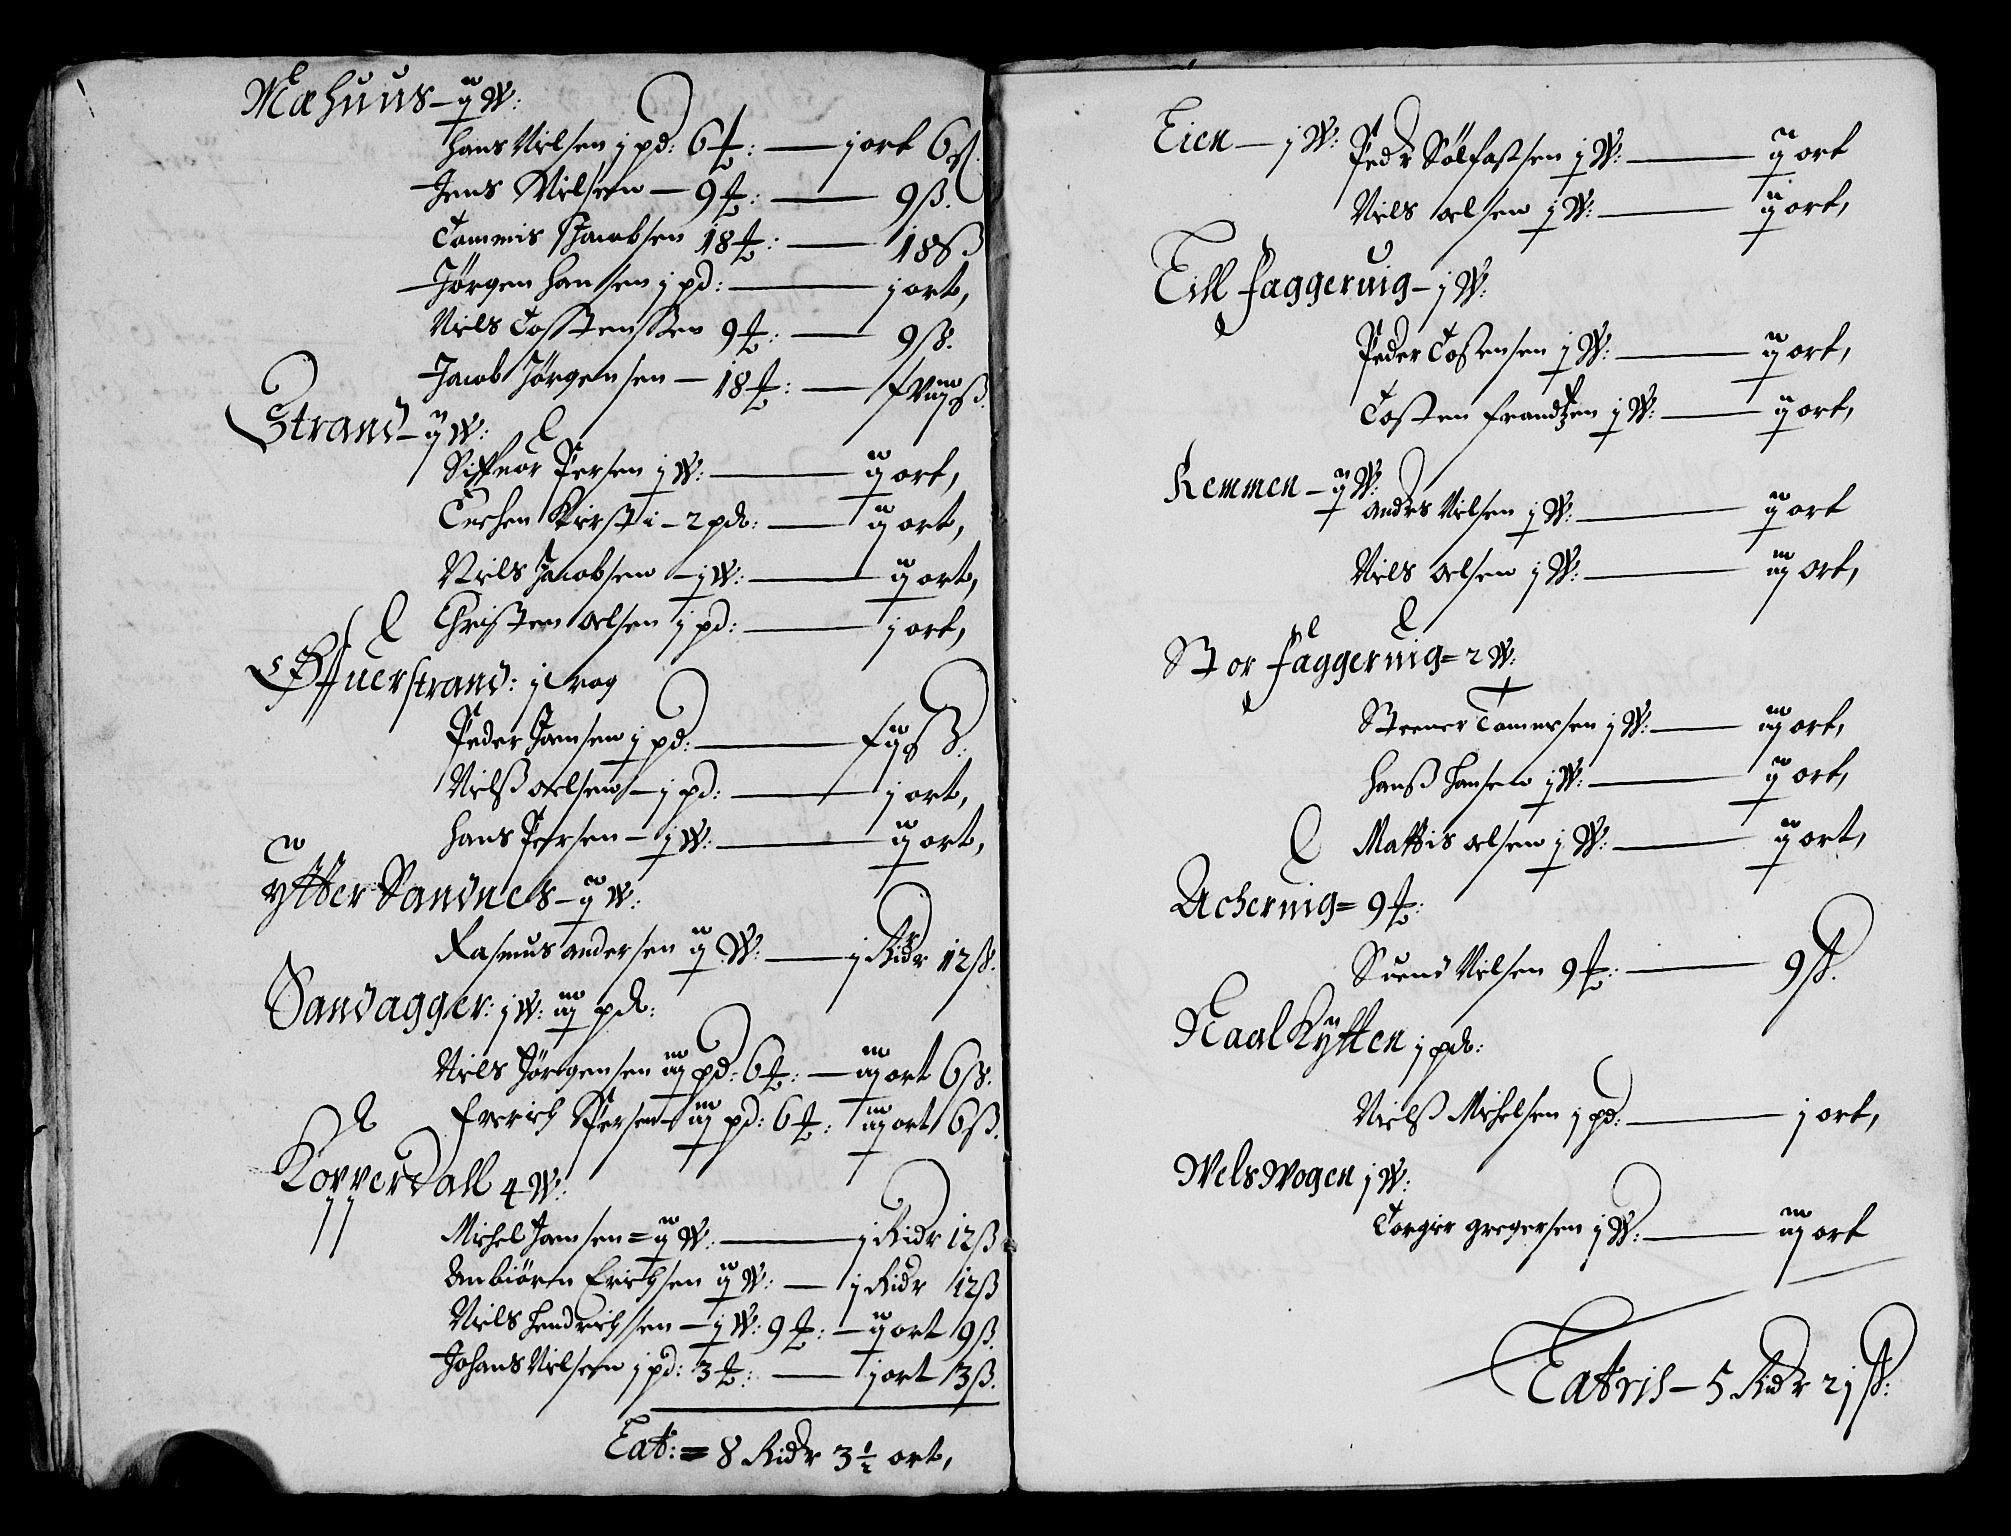 Mæhuus – ij W:
Hans Nielsen j pd: 6 ℔: — j ort 6 ß.
Jens Nielsen – 9 ℔: — 9 ß.
Tommis Jacobsen 18 ℔: — 18 ß
Jørgen Hansen j pd: — j ort,
Niels Tostensen 9 ℔: — 9 ß.
Jacob Jørgensen – 18 ℔: — xviij ß.
Strand – ij W:
Siffuor Persen j W: — ij ort,
Enchen Kirsti – 2 pd: — ij ort,
Niels Jacobsen – j W: — ij ort,
Christen Oelsen j pd: — j ort,
Øffuerstrand: j Wog
Peder Jansen j pd: — ß.
Nielß Oelsen – j pd: — j ort,
Hans Persen – j W: — ij ort,
Ytter Sandnes – ij W:
Rasmus Andersen ij W: — j Ridr 12 ß.
Sandagger: j W: iij pd:
Niels Jørgensen iij pd: 6 ℔: — iij ort 6 ß.
Frerich Persen – iij pd: 6 ℔: iij ort 6 ß.
Kopperdall 4 W:
Michel Jansen = ij W: — j Ridr 12 ß
Anbiörn Erichsen ij W: — j Ridr 12 ß
Niels Hendrichsen – j W: 9 ℔: – ij ort 9 ß.
Johans Nielsen j pd: 3 ℔: — j ort 3 ß.
Lat: = 8 Ridr 3 1/2 ort,
Eien – j W: Pedr Sölfastsen j W: — ij ort
Niels Oelsen j W: — ij ort,
Lill Faggeruig – j W:
Peder Tostensen j W: — ij ort,
Tosten Frandtzen j W: — ij ort,
Remmen – ij W:
Anders Nielsen j W: — ij ort
Niels Oelsen j W: — iij ort,
Stor Faggeruig = 2 W:
Steener Tommesen j W: — iij ort,
Hanß Hansen j W: — ij ort,
Mattis Oelsen j W: — ij ort,
Acheruig = 9 ℔:
Suend Nielsen 9 ℔: — 9 ß.
Naal Kÿtten j pd:
Nielß Michelsen j pd: — j ort,
Wels Wogen j W:
Torgier Gregersen j W: — iij ort
Latris – 5 Ridr 21 ß: